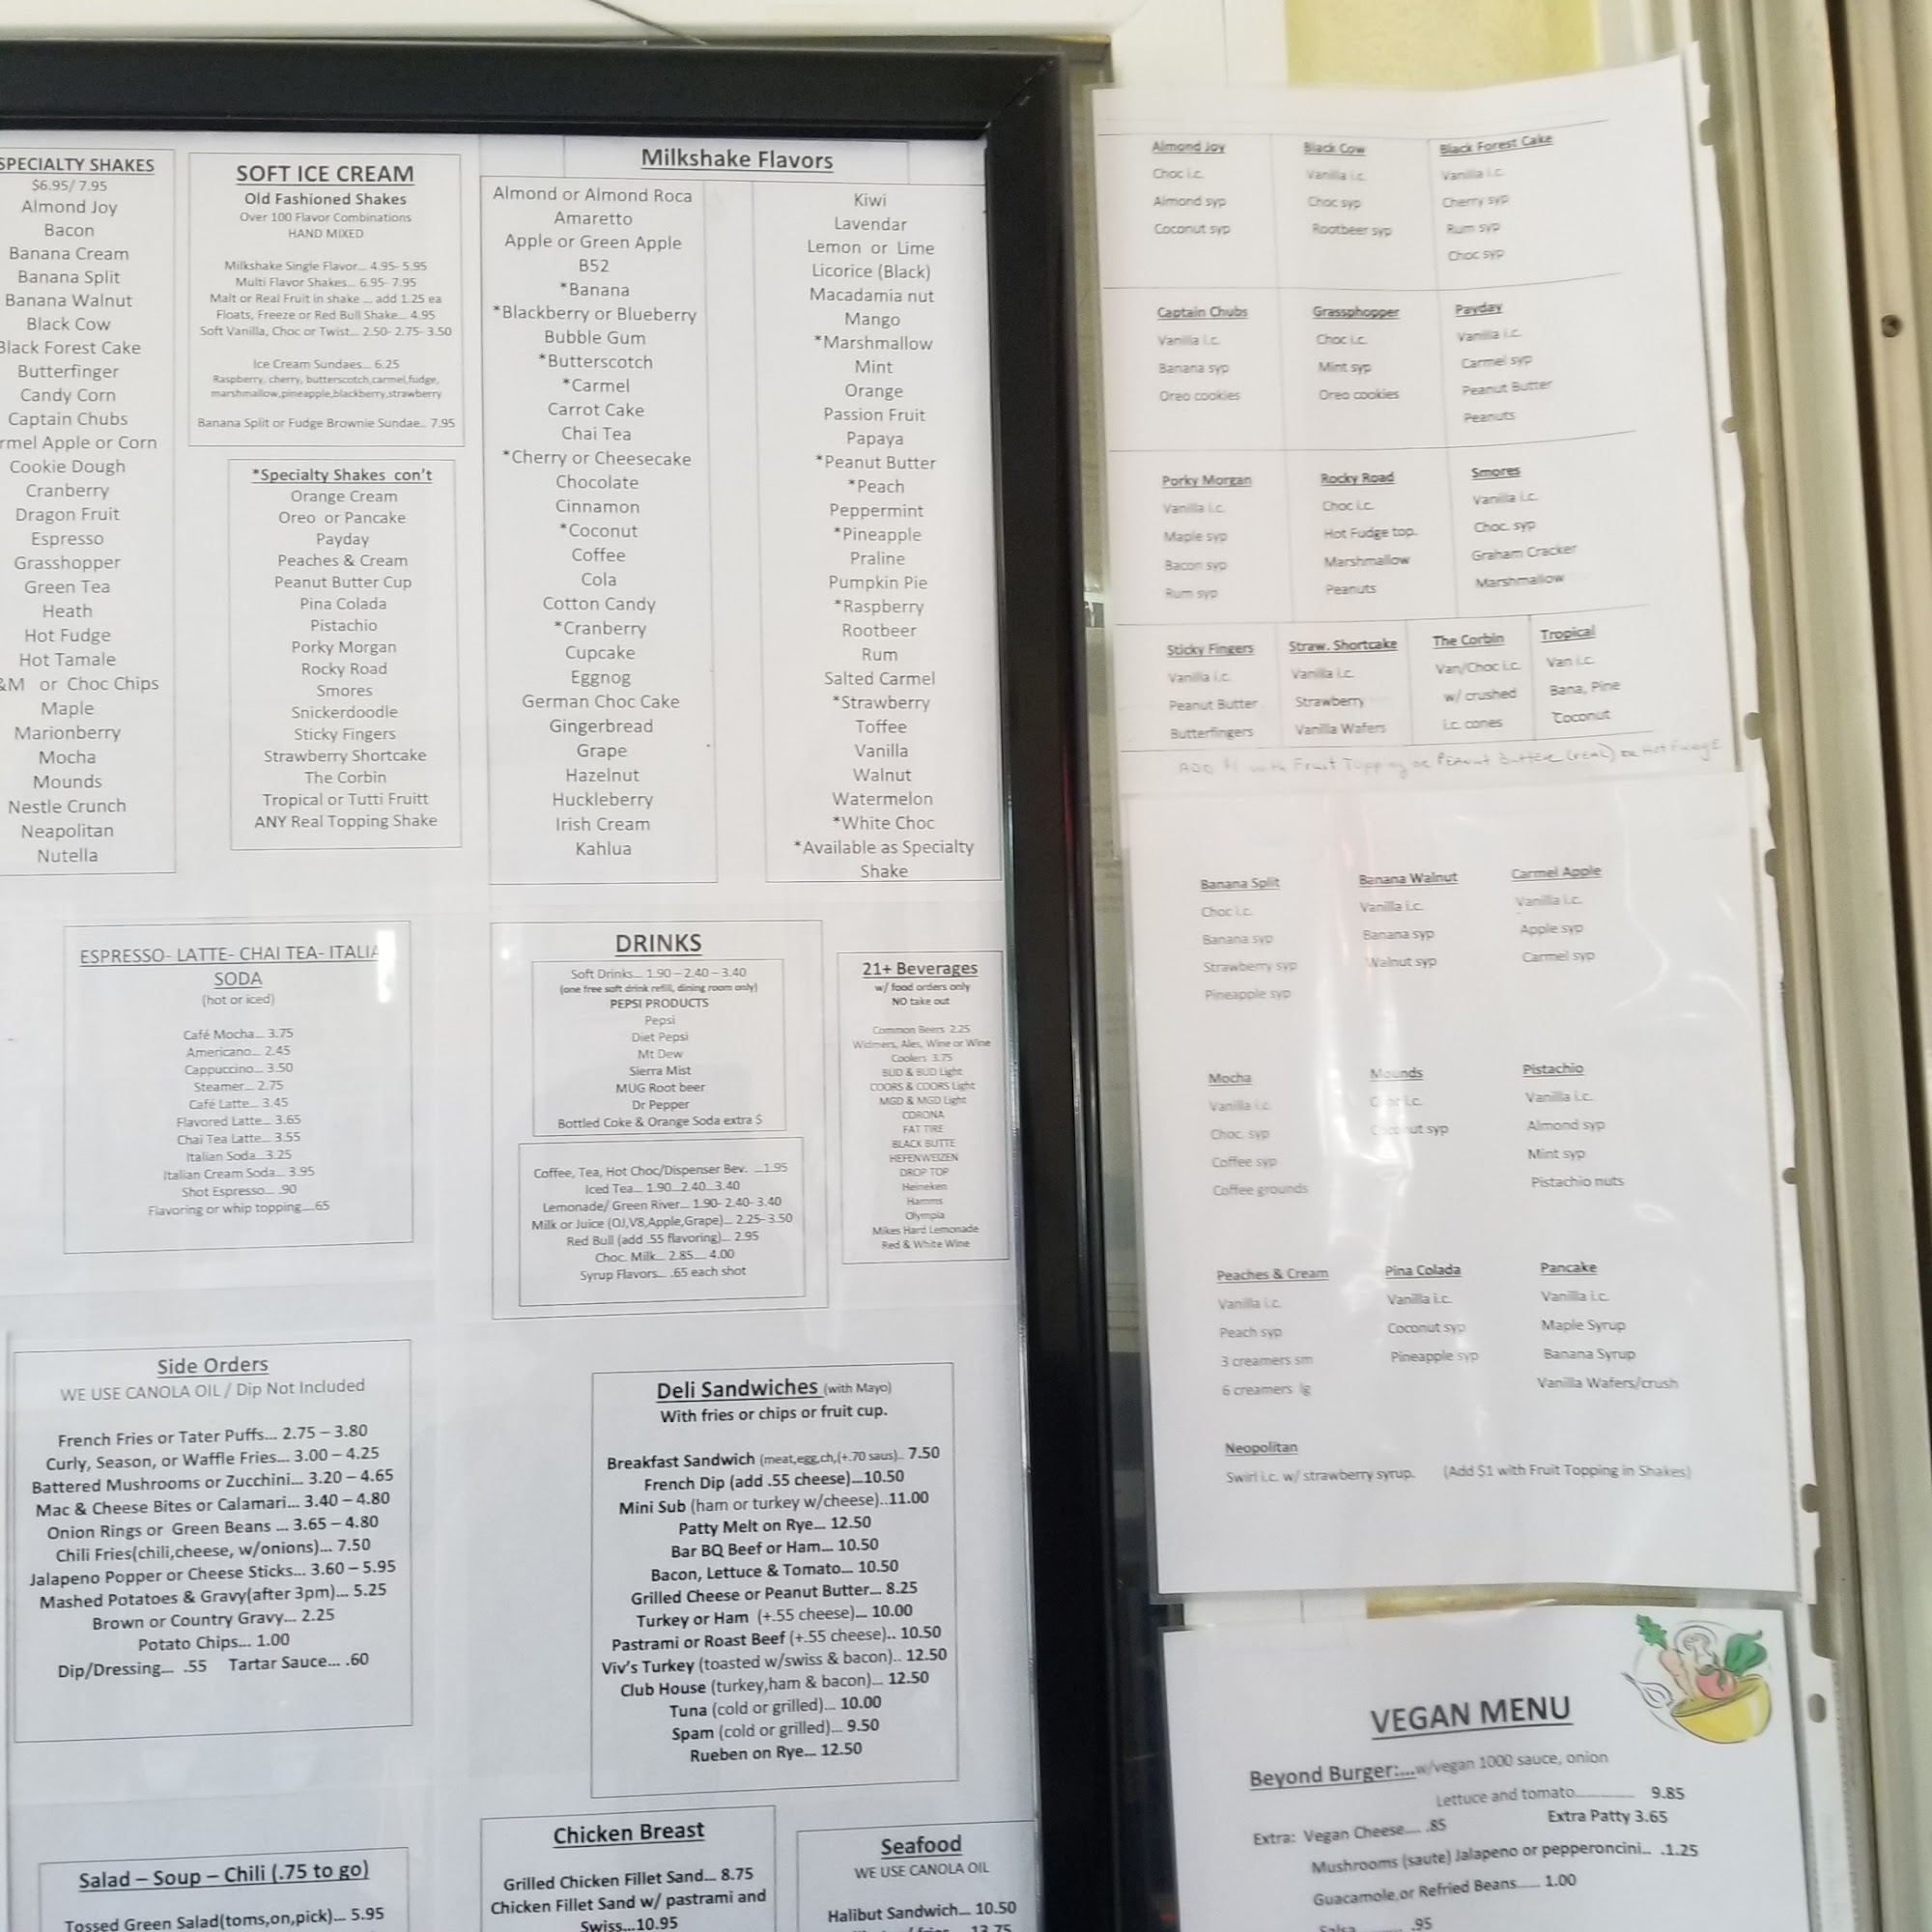 SPECIALTY SHAKES
$6.95/ 7.95
Almond Joy
Bacon
Banana Cream
Banana Split
Banana Walnut
Black Cow
Black Forest Cake
Butterfinger
Candy Corn
Captain Chubs
rmel Apple or Corn
Cookie Dough
Cranberry
Dragon Fruit
Espresso
Grasshopper
Green Tea
Heath
Hot Fudge
Hot Tamale
&M or Choc Chips
Maple
Marionberry
Mocha
Mounds
Nestle Crunch
Neapolitan
Nutella
SOFT ICE CREAM
Old Fashioned Shakes
Over 100 Flavor Combinations
HAND MIXED
Milkshake Single Flavor... 4.95- 5.95
Multi Flavor Shakes... 6.95- 7.95
Malt or Real Fruit in shake ... add 1.25 ea
Floats, Freeze or Red Bull Shake... 4.95
Soft Vanilla, Choc or Twist... 2.50- 2.75- 3.50
Ice Cream Sundaes... 6.25
Raspberry, cherry, butterscotch,carmel,fudge,
marshmallow,pineapple,blackberry,strawberry
Banana Split or Fudge Brownie Sundae.. 7.95
*Specialty Shakes con't
Orange Cream
Oreo or Pancake
Payday
Peaches & Cream
Peanut Butter Cup
Pina Colada
Pistachio
Porky Morgan
Rocky Road
Smores
Snickerdoodle
Sticky Fingers
Strawberry Shortcake
The Corbin
Tropical or Tutti Fruitt
ANY Real Topping Shake
Milkshake Flavors
Almond or Almond Roca
Amaretto
Apple or Green Apple
B52
*Banana
*Blackberry or Blueberry
Bubble Gum
*Butterscotch
*Carmel
Carrot Cake
Chai Tea
*Cherry or Cheesecake
Chocolate
Cinnamon
*Coconut
Coffee
Cola
Cotton Candy
*Cranberry
Cupcake
Eggnog
German Choc Cake
Gingerbread
Grape
Hazelnut
Huckleberry
Irish Cream
Kahlua
Kiwi
Lavendar
Lemon or Lime
Licorice (Black)
Macadamia nut
Mango
*Marshmallow
Mint
Orange
Passion Fruit
Papaya
*Peanut Butter
*Peach
Peppermint
*Pineapple
Praline
Pumpkin Pie
*Raspberry
Rootbeer
Rum
Salted Carmel
*Strawberry
Toffee
Vanilla
Walnut
Watermelon
*White Choc
*Available as Specialty
Shake
ESPRESSO- LATTE- CHAI TEA- ITALIA
SODA
(hot or iced)
Café Mocha... 3.75
Americano... 2.45
Cappuccino... 3.50
Steamer... 2.75
Café Latte... 3.45
Flavored Latte... 3.65
Chai Tea Latte... 3.55
Italian Soda...3.25
Italian Cream Soda... 3.95
Shot Espresso... .90
Flavoring or whip topping....65
DRINKS
Soft Drinks... 1.90 – 2.40 – 3.40
(one free soft drink refill, dining room only)
PEPSI PRODUCTS
Pepsi
Diet Pepsi
Mt Dew
Sierra Mist
MUG Root beer
Dr Pepper
Bottled Coke & Orange Soda extra $
Coffee, Tea, Hot Choc/Dispenser Bev. ...1.95
Iced Tea... 1.90...2.40...3.40
Lemonade/ Green River... 1.90- 2.40- 3.40
Milk or Juice (OJ,V8,Apple,Grape)... 2.25- 3.50
Red Bull (add .55 flavoring)... 2.95
Choc. Milk... 2.85.... 4.00
Syrup Flavors... .65 each shot
21+ Beverages
w/ food orders only
NO take out
Common Beers 2.25
Widmers, Ales, Wine or Wine
Coolers 3.75
BUD & BUD Light
COORS & COORS Light
MGD & MGD Light
CORONA
FAT TIRE
BLACK BUTTE
HEFENWEIZEN
DROP TOP
Heineken
Hamms
Olympia
Mikes Hard Lemonade
Red & White Wine
Side Orders
WE USE CANOLA OIL / Dip Not Included
French Fries or Tater Puffs... 2.75 – 3.80
Curly, Season, or Waffle Fries... 3.00 – 4.25
Battered Mushrooms or Zucchini... 3.20 – 4.65
Mac & Cheese Bites or Calamari... 3.40 – 4.80
Onion Rings or Green Beans ... 3.65 – 4.80
Chili Fries(chili,cheese, w/onions)... 7.50
Jalapeno Popper or Cheese Sticks... 3.60 – 5.95
Mashed Potatoes & Gravy(after 3pm)... 5.25
Brown or Country Gravy... 2.25
Potato Chips... 1.00
Dip/Dressing... .55 Tartar Sauce... .60
Deli Sandwiches (with Mayo)
With fries or chips or fruit cup.
Breakfast Sandwich (meat,egg,ch,(+.70 saus).. 7.50
French Dip (add .55 cheese)...10.50
Mini Sub (ham or turkey w/cheese)..11.00
Patty Melt on Rye... 12.50
Bar BQ Beef or Ham... 10.50
Bacon, Lettuce & Tomato... 10.50
Grilled Cheese or Peanut Butter... 8.25
Turkey or Ham (+.55 cheese)... 10.00
Pastrami or Roast Beef (+.55 cheese).. 10.50
Viv's Turkey (toasted w/swiss & bacon).. 12.50
Club House (turkey,ham & bacon)... 12.50
Tuna (cold or grilled)... 10.00
Spam (cold or grilled)... 9.50
Rueben on Rye... 12.50
Salad – Soup – Chili (.75 to go)
Tossed Green Salad(toms,on,pick)... 5.95
Chicken Breast
Grilled Chicken Fillet Sand... 8.75
Chicken Fillet Sand w/ pastrami and
Swiss...10.95
Seafood
WE USE CANOLA OIL
Halibut Sandwich... 10.50
13.75
Almond Joy
Choc i.c.
Almond syp
Coconut syp
Black Cow
Vanilla i.c.
Choc syp
Rootbeer syp
Black Forest Cake
Vanilla i.c.
Cherry syp
Rum syp
Choc syp
Captain Chubs
Vanilla i.c.
Banana syp
Oreo cookies
Grasshopper
Choc i.c.
Mint syp
Oreo cookies
Payday
Vanilla i.c.
Carmel syp
Peanut Butter
Peanuts
Porky Morgan
Vanilla i.c.
Maple syp
Bacon syp
Rum syp
Rocky Road
Choc i.c.
Hot Fudge top.
Marshmallow
Peanuts
Smores
Vanilla i.c.
Choc. syp
Graham Cracker
Marshmallow
Sticky Fingers
Vanilla i.c.
Peanut Butter
Butterfingers
Straw. Shortcake
Vanilla i.c.
Strawberry
Vanilla Wafers
The Corbin
Van/Choc i.c.
w/ crushed
i.c. cones
Tropical
Van i.c.
Bana, Pine
Coconut
ADD $1 with Fruit Topping or PEANUT BUTTER (real) or Hot Fudge
Banana Split
Choc i.c.
Banana syp
Strawberry syp
Pineapple syp
Banana Walnut
Vanilla i.c.
Banana syp
Walnut syp
Carmel Apple
Vanilla i.c.
Apple syp
Carmel syp
Mocha
Vanilla i.c.
Choc. syp
Coffee syp
Coffee grounds
Mounds
Choc i.c.
Coconut syp
Pistachio
Vanilla i.c.
Almond syp
Mint syp
Pistachio nuts
Peaches & Cream
Vanilla i.c.
Peach syp
3 creamers sm
6 creamers lg
Pina Colada
Vanilla i.c.
Coconut syp
Pineapple syp
Pancake
Vanilla i.c.
Maple Syrup
Banana Syrup
Vanilla Wafers/crush
Neopolitan
Swirl i.c. w/ strawberry syrup. (Add $1 with Fruit Topping in Shakes)
VEGAN MENU
Beyond Burger:....w/vegan 1000 sauce, onion
Lettuce and tomato............... 9.85
Extra: Vegan Cheese.... .85 Extra Patty 3.65
Mushrooms (saute) Jalapeno or pepperoncini... .1.25
Guacamole,or Refried Beans...... 1.00
Salsa .......... .95